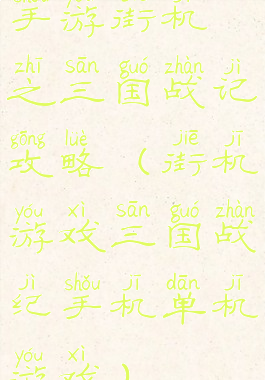 手游街机
zhī sān guó zhàn jì
之三国战记
gōng lüè jiē jī
攻略(街机
yóu xì sān guó zhàn
游戏三国战
jì shǒu jī dān jī
纪手机单机
yóu xì
游戏)